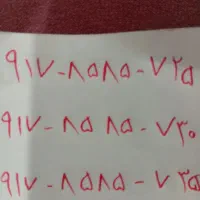 ۹۱۷-۸۵۸۵-۷۲۵
۹۱۷-۸۵۸۵-۷۳۰
۹۱۷-۸۵۸۵-۷۲۵